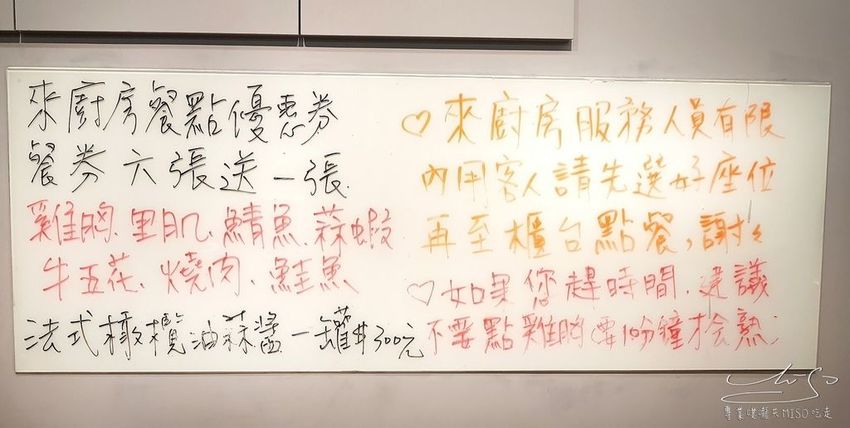 來廚房餐點優惠券
餐券六張送一張
雞胸.里肌.鯖魚.蒜蝦
牛五花.燒肉.鮭魚
法式橄欖油蒜醬一罐#300元
♡來廚房服務人員有限
內用客人請先選好座位
再至櫃台點餐,謝々
♡如果您趕時間.建議
不要點雞胸(要10分鐘才会熟)
MISO